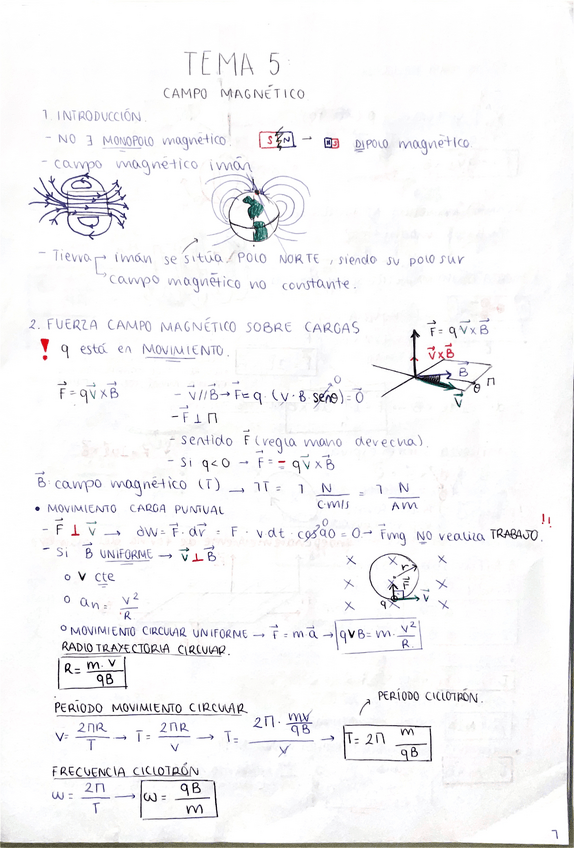 TEMA 5:
CAMPO MAGNÉTICO
1. INTRODUCCIÓN.
- NO ∃ MONOPOLO magnético. S N → N S DIPOLO magnético.
- campo magnético imán
- Tierra → imán se sitúa / POLO NORTE, siendo su polo sur
→ campo magnético no constante.
2. FUERZA CAMPO MAGNÉTICO SOBRE CARGAS
! q está en MOVIMIENTO.
F⃗ = q V⃗ x B⃗
V⃗ x B⃗
B⃗
θ Π
V⃗
F⃗ = q V⃗ x B⃗
- V⃗ // B⃗ → F⃗ = q · (V · B · senθ) = 0⃗
0
- F⃗ ⊥ Π
- sentido F⃗ (regla mano derecha).
- si q<0 → F⃗ = - q V⃗ x B⃗
B⃗: campo magnético (T) → 1T = 1 N / C·m/s = 1 N / Am
• MOVIMIENTO CARGA PUNTUAL
- F⃗ ⊥ V⃗ → dW = F⃗ · dr⃗ = F · v dt · cos90 = 0 → F⃗mg NO realiza TRABAJO. !!
0
- Si B⃗ UNIFORME → V⃗ ⊥ B⃗
° v cte
° an = v² / R
x x x
x x
x x x
r
F⃗
q
V⃗
° MOVIMIENTO CIRCULAR UNIFORME → F⃗ = m a⃗ → qVB = m · v² / R
RADIO TRAYECTORIA CIRCULAR.
R = m · v / qB
PERÍODO CICLOTRÓN.
PERÍODO MOVIMIENTO CIRCULAR
V = 2ΠR / T → T = 2ΠR / v → T = 2Π · mv/qB / v → T = 2Π m / qB
FRECUENCIA CICLOTRÓN
ω = 2Π / T → ω = qB / m
1